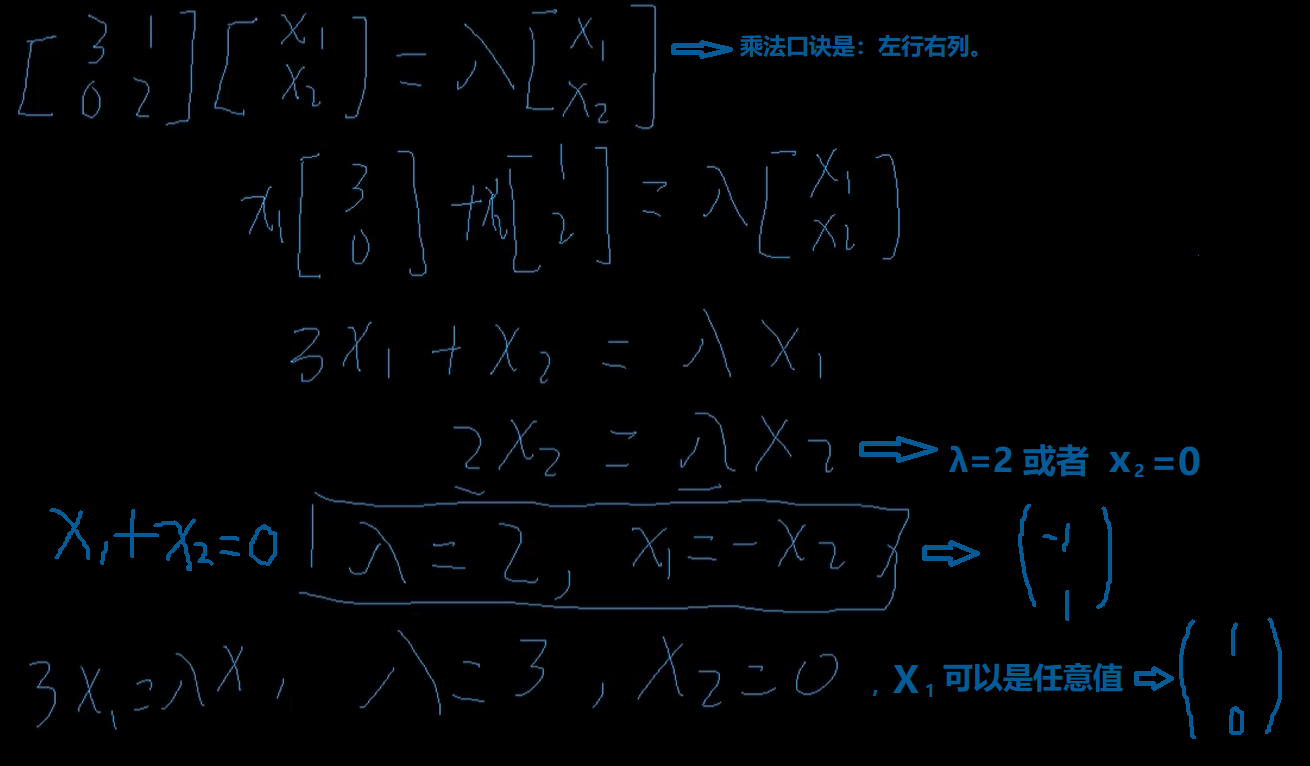 [3 1; 0 2] [x₁; x₂] = λ [x₁; x₂] ⇒ 乘法口诀是：左行右列。
x₁ [3; 0] + x₂ [1; 2] = λ [x₁; x₂]
3x₁ + x₂ = λx₁
2x₂ = λx₂ ⇒ λ=2 或者 x₂=0
x₁+x₂=0 λ = 2, x₁ = -x₂ ⇒ (-1; 1)
3x₁=λx₁ λ=3, x₂=0 , x₁ 可以是任意值 ⇒ (1; 0)